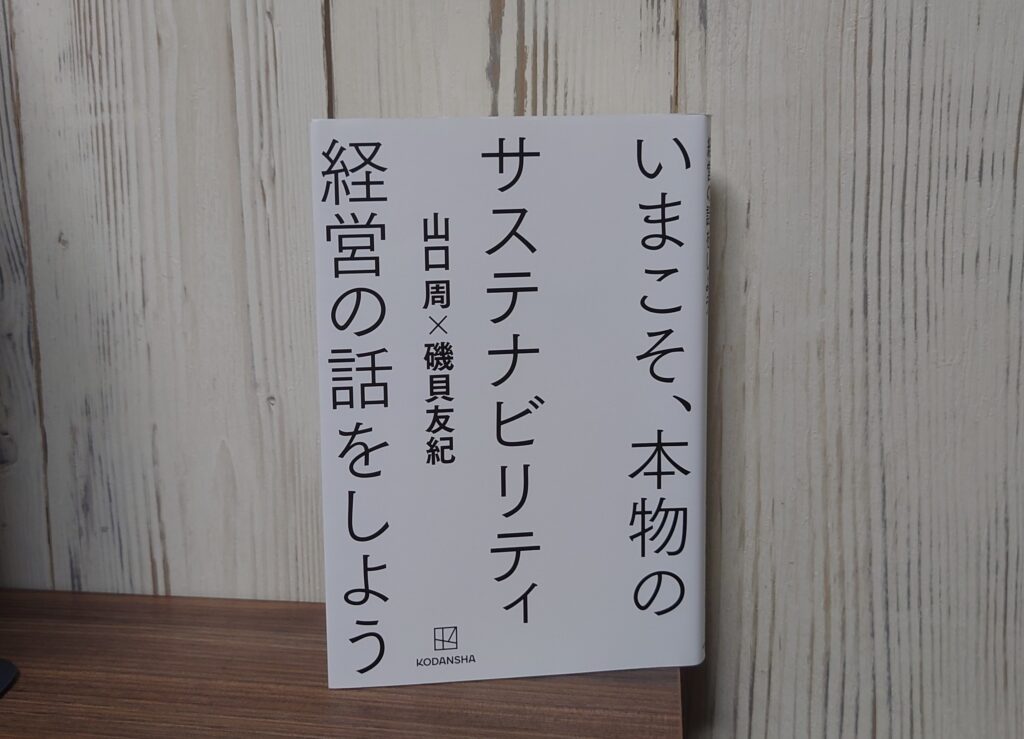 いまこそ、本物の
サステナビリティ
経営の話をしよう
山口 周×磯貝友紀
KODANSHA